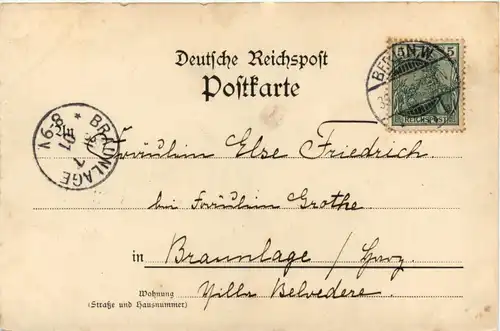 Deutsche Reichspost
Postkarte
BERLIN, N.W.
5 5
REICHSPOST
BRAUNLAGE
6-8 V
Fräulein Else Friedrich
bei Fräulein Grothe
in Braunlage / Harz
Wohnung
(Straße und Hausnummer)
Villa Belvedere.